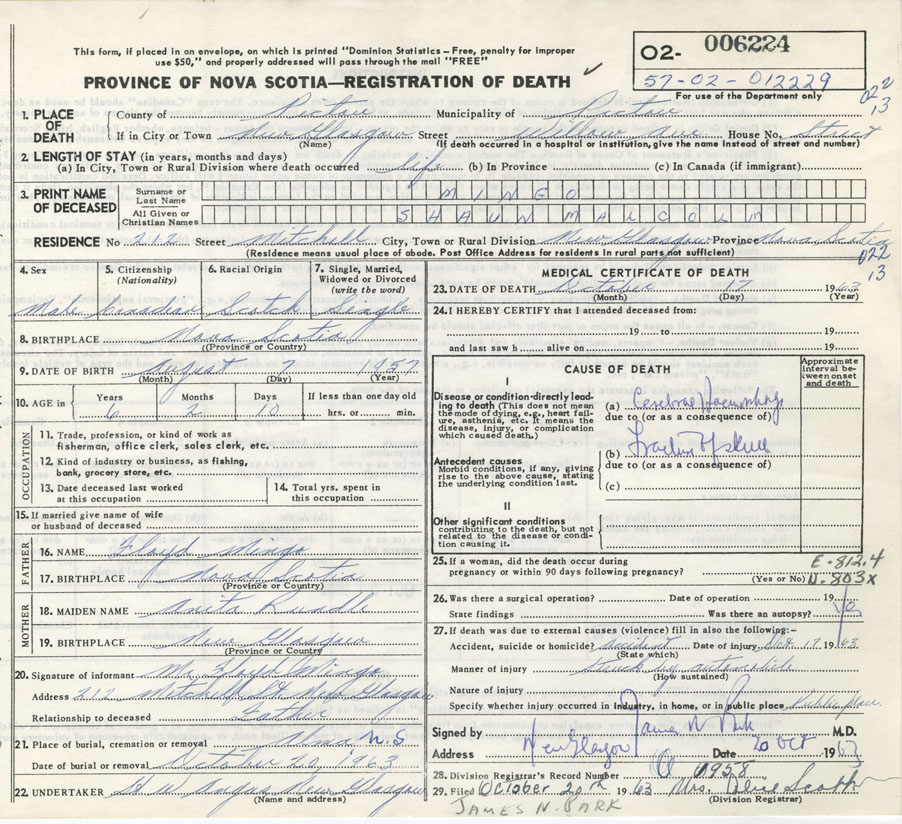 This form, if placed in an envelope, on which is printed "Dominion Statistics – Free, penalty for improper
use $50," and properly addressed will pass through the mail "FREE"
PROVINCE OF NOVA SCOTIA—REGISTRATION OF DEATH
02- 006224
57-02-012229
For use of the Department only
022
13
1. PLACE OF DEATH { County of Pictou Municipality of Pictou
If in City or Town New Glasgow Street Willow Ave House No. Street
(Name) (If death occurred in a hospital or institution, give the name instead of street and number)
2. LENGTH OF STAY (in years, months and days)
(a) In City, Town or Rural Division where death occurred life (b) In Province (c) In Canada (if immigrant)
3. PRINT NAME OF DECEASED { Surname or Last Name MINGO
All Given or Christian Names SHAUN MALCOLM
RESIDENCE No 212 Street Mitchell City, Town or Rural Division New Glasgow Province Nova Scotia
(Residence means usual place of abode. Post Office Address for residents in rural parts not sufficient)
022
13
4. Sex 5. Citizenship (Nationality) 6. Racial Origin 7. Single, Married, Widowed or Divorced (write the word)
Male Canadian Scotch Single
8. BIRTHPLACE Nova Scotia
(Province or Country)
9. DATE OF BIRTH August 7 1957
(Month) (Day) (Year)
10. AGE in { Years Months Days If less than one day old
6 2 10 hrs. or min.
OCCUPATION
11. Trade, profession, or kind of work as
fisherman, office clerk, sales clerk, etc.
12. Kind of industry or business, as fishing,
bank, grocery store, etc.
13. Date deceased last worked
at this occupation
14. Total yrs. spent in
this occupation
15. If married give name of wife
or husband of deceased
FATHER
16. NAME Floyd Mingo
17. BIRTHPLACE Nova Scotia
(Province or Country)
MOTHER
18. MAIDEN NAME Anita Rundle
19. BIRTHPLACE New Glasgow
(Province or Country)
20. Signature of informant Mr. Floyd Mingo
Address 212 Mitchell St New Glasgow
Relationship to deceased Father
21. Place of burial, cremation or removal N.S
Date of burial or removal October 20, 1963
22. UNDERTAKER H W Angus New Glasgow
(Name and address)
MEDICAL CERTIFICATE OF DEATH
23. DATE OF DEATH October 17 1963
(Month) (Day) (Year)
24. I HEREBY CERTIFY that I attended deceased from:
19 to 19
and last saw h alive on 19
CAUSE OF DEATH
Approximate interval between onset and death
I
Disease or condition directly leading to death (This does not mean the mode of dying, e.g., heart failure, asthenia, etc. It means the disease, injury, or complication which caused death.)
(a) Cerebral Haemorrhage
due to (or as a consequence of)
Antecedent causes
Morbid conditions, if any, giving rise to the above cause, stating the underlying condition last.
(b) Fracture of skull
due to (or as a consequence of)
(c)
II
Other significant conditions
contributing to the death, but not related to the disease or condition causing it.
25. If a woman, did the death occur during
pregnancy or within 90 days following pregnancy? (Yes or No)
E-812.4
N-803x
26. Was there a surgical operation? Date of operation 19
State findings Was there an autopsy?
27. If death was due to external causes (violence) fill in also the following:–
Accident, suicide or homicide? Accident Date of injury Oct 17 1963
(State which)
Manner of injury Struck by automobile
(How sustained)
Nature of injury
Specify whether injury occurred in industry, in home, or in public place Public place
Signed by James N Park M.D.
Address New Glasgow Date 20 Oct 1963
28. Division Registrar's Record Number 0958
29. Filed October 20th 1963 Mrs. Scott
(Division Registrar)
JAMES N. PARK